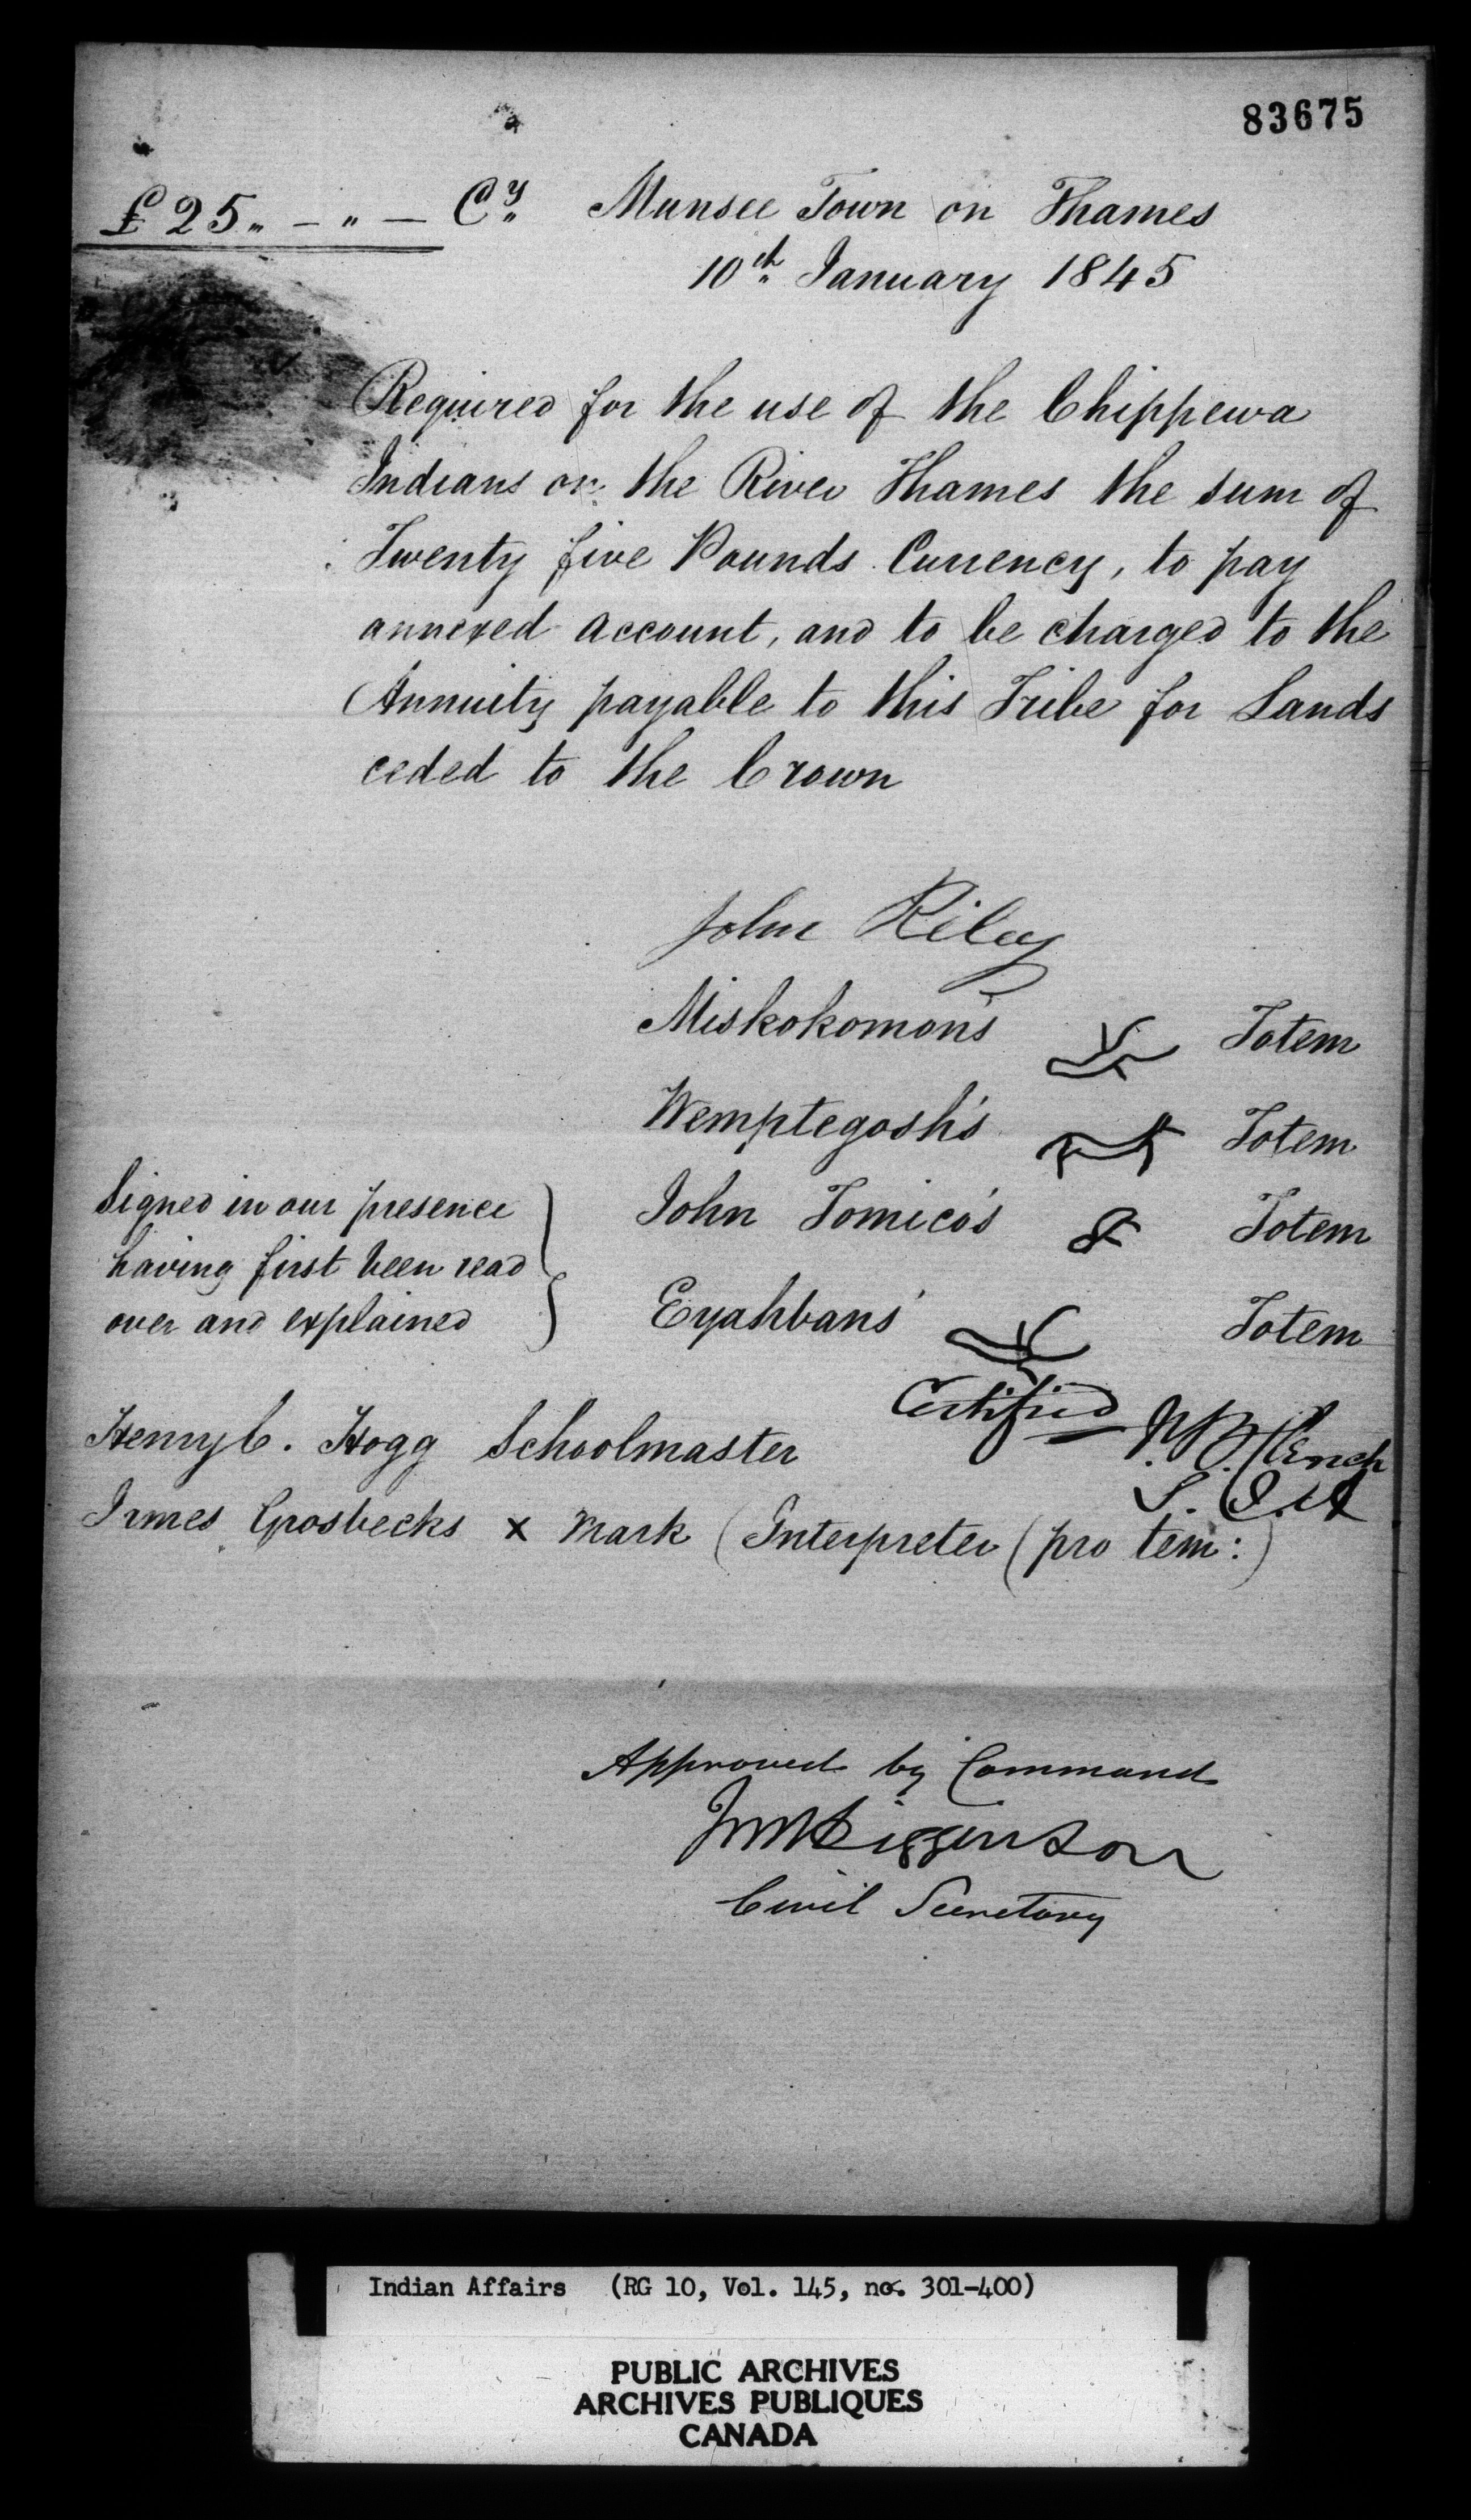 83675
£25 〃 – 〃 – Cy. Munsee Town on Thames
10th January 1845
Required for the use of the Chippewa
Indians on the River Thames the sum of
Twenty five Pounds Currency, to pay
annexed account, and to be charged to the
Annuity payable to this Tribe for Lands
ceded to the Crown
John Riley
Miskokomon's Totem
Wemptegosh's Totem
John Tomico's Totem
Eyahbans' Totem
Signed in our presence
having first been read
over and explained
Certified
J. B. Clench
S. I. A
Henry C. Hogg Schoolmaster
James Grosbecks x mark (Interpreter (pro tem:)
Approved by Command
J M Higginson
Civil Secretary
Indian Affairs (RG 10, Vol. 145, no. 301-400)
PUBLIC ARCHIVES
ARCHIVES PUBLIQUES
CANADA